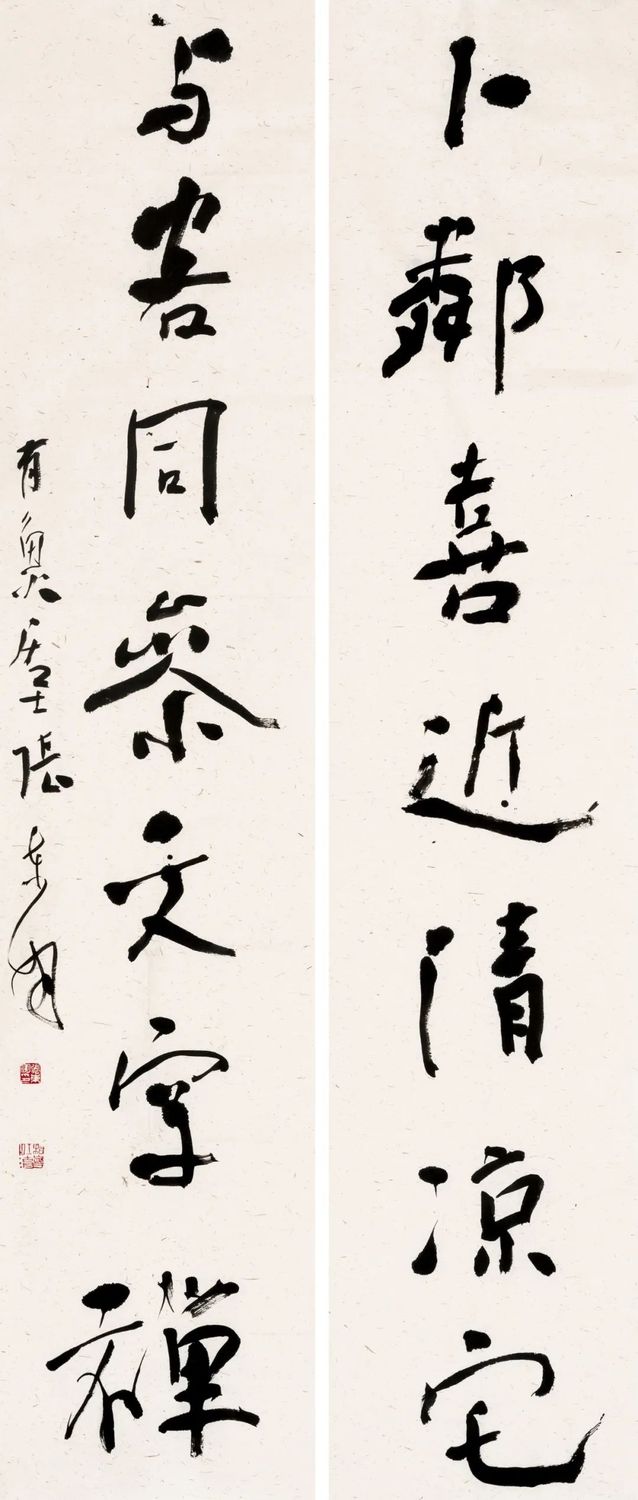 卜鄰喜近清凉宅
与客同參文字禪
有魚居士張